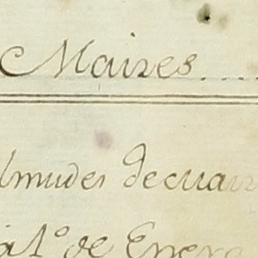 Maizes....
lmudes de cuar
a 1º de Enero